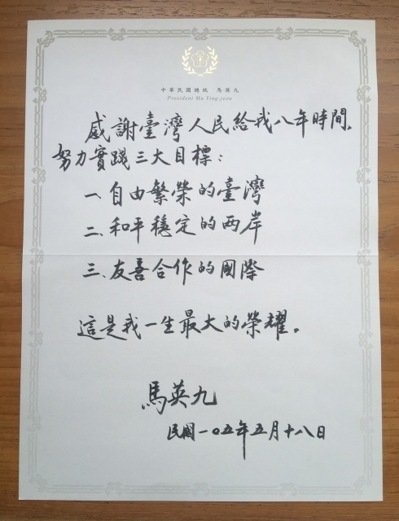 中華民國總統 馬英九
President Ma Ying-jeou
感謝臺灣人民給我八年時間,
努力實踐三大目標:
一、自由繁榮的臺灣
二、和平穩定的兩岸
三、友善合作的國際
這是我一生最大的榮耀。
馬英九
民國一〇五年五月十八日